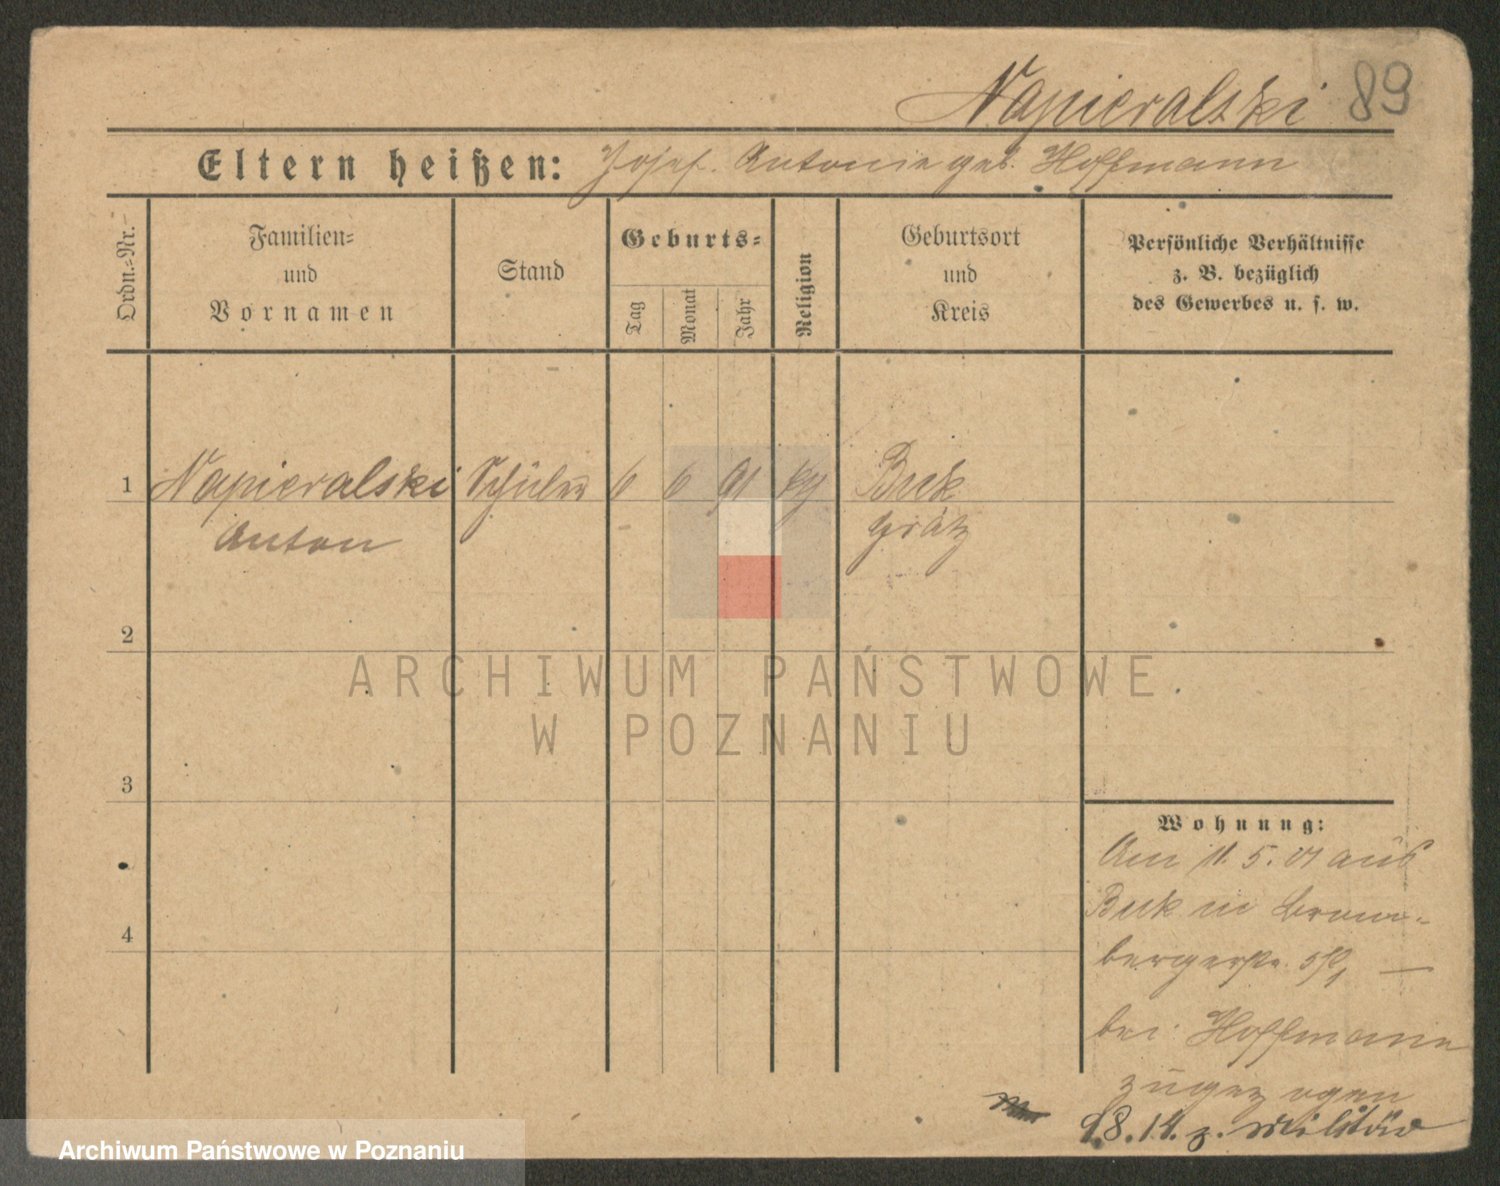 Napieralski 89
Eltern heißen: Josef. Antonie geb. Hoffmann
Ordn.-Nr.
Familien-
und
Vornamen
Stand
Geburts-
Tag
Monat
Jahr
Religion
Geburtsort
und
Kreis
Persönliche Verhältnisse
z. B. bezüglich
des Gewerbes u. s. w.
1 Napieralski Schüler 6 6 91 Buk
Anton Grätz
2
ARCHIWUM PAŃSTWOWE
W POZNANIU
3
Wohnung:
Am 11. 5. 01 aus
Buk in Brom-
bergerstr.
4
bei Hoffmann
zugezogen
18.14. z. Militär
Archiwum Państwowe w Poznaniu